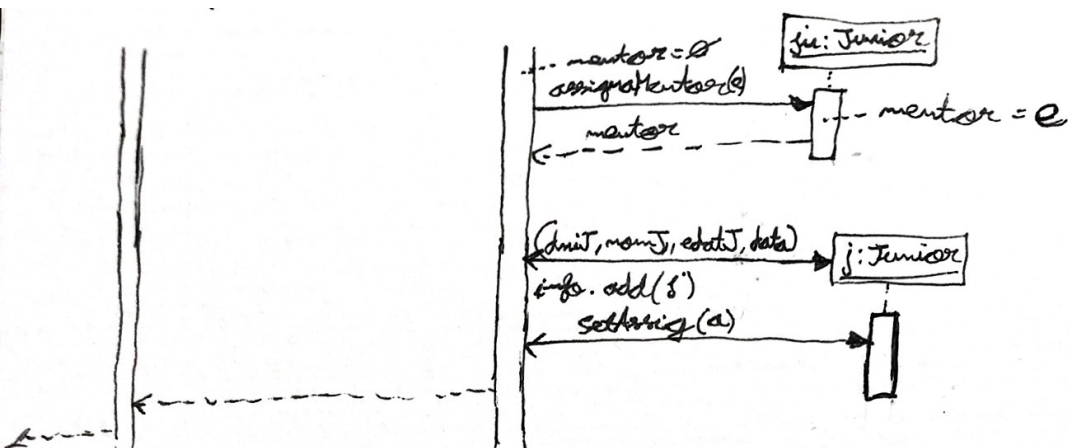 ju: Junior
mentor = ∅
assignaMentor(e)
mentor = e
mentor
(dniJ, nomJ, edatJ, data)
j: Junior
info.add(j)
setAssig(a)